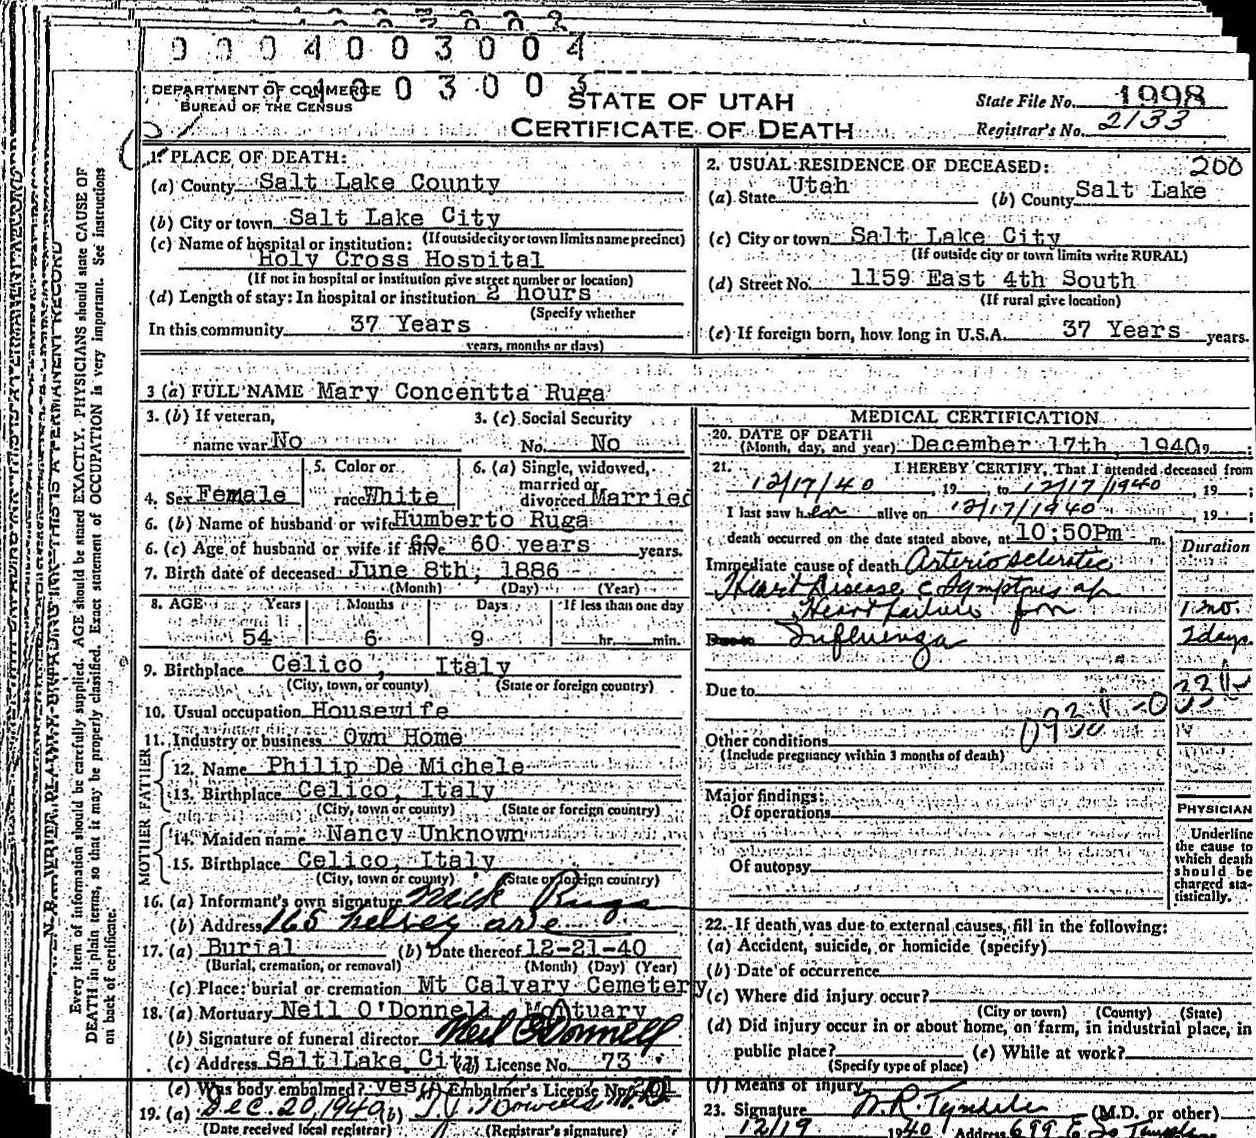 0 0 0 4 0 0 3 0 0 4
DEPARTMENT OF COMMERCE
BUREAU OF THE CENSUS
STATE OF UTAH
CERTIFICATE OF DEATH
State File No. 1998
Registrar's No. 2133
1. PLACE OF DEATH:
(a) County Salt Lake County
(b) City or town Salt Lake City
(If outside city or town limits name precinct)
(c) Name of hospital or institution:
Holy Cross Hospital
(If not in hospital or institution give street number or location)
(d) Length of stay: In hospital or institution 2 hours
(Specify whether
In this community 37 Years
years, months or days)
2. USUAL RESIDENCE OF DECEASED: 200
(a) State Utah (b) County Salt Lake
(c) City or town Salt Lake City
(If outside city or town limits write RURAL)
(d) Street No. 1159 East 4th South
(If rural give location)
(e) If foreign born, how long in U.S.A. 37 Years years.
3 (a) FULL NAME Mary Concentta Ruga
3. (b) If veteran,
name war No
3. (c) Social Security
No. No
4. Sex Female
5. Color or
race White
6. (a) Single, widowed,
married or
divorced Married
6. (b) Name of husband or wife Humberto Ruga
6. (c) Age of husband or wife if alive 60 years years.
7. Birth date of deceased June 8th, 1886
(Month) (Day) (Year)
8. AGE Years Months Days If less than one day
54 6 9 hr. min.
9. Birthplace Celico, Italy
(City, town, or county) (State or foreign country)
10. Usual occupation Housewife
11. Industry or business Own Home
FATHER
12. Name Philip De Michele
13. Birthplace Celico, Italy
(City, town or county) (State or foreign country)
MOTHER
14. Maiden name Nancy Unknown
15. Birthplace Celico, Italy
(City, town or county) (State or foreign country)
16. (a) Informant's own signature Nick Ruga
(b) Address 165 Kelsey ave
17. (a) Burial (b) Date thereof 12-21-40
(Burial, cremation, or removal) (Month) (Day) (Year)
(c) Place: burial or cremation Mt Calvary Cemetery
18. (a) Mortuary Neil O'Donnell Mortuary
(b) Signature of funeral director Neil O'Donnell
(c) Address Salt Lake City (d) License No. 73
(e) Was body embalmed? yes (f) Embalmer's License No.
19. (a) Dec. 20, 1940 (b)
(Date received local registrar) (Registrar's signature)
MEDICAL CERTIFICATION
20. DATE OF DEATH
(Month, day, and year) December 17th, 1940
21. I HEREBY CERTIFY, That I attended deceased from
12/17/40, 19 to 12/17/1940, 19 :
I last saw her alive on 12/17/1940, 19 :
death occurred on the date stated above, at 10:50Pm m.
Duration
Immediate cause of death Arteriosclerotic
Heart Disease c Symptoms of
Heart failure for 1 mo.
Due to Influenza 2 days
Due to
Other conditions
(Include pregnancy within 3 months of death)
Major findings:
Of operations
Of autopsy
PHYSICIAN
Underline
the cause to
which death
should be
charged sta-
tistically.
22. If death was due to external causes, fill in the following:
(a) Accident, suicide, or homicide (specify)
(b) Date of occurrence
(c) Where did injury occur?
(City or town) (County) (State)
(d) Did injury occur in or about home, on farm, in industrial place, in
public place? (e) While at work?
(Specify type of place)
(f) Means of injury
23. Signature W.R. Tyndale (M.D. or other)
12/19 1940 Address 699 E So Temple
Every item of information should be carefully supplied. AGE should be stated EXACTLY. PHYSICIANS should state CAUSE OF
DEATH in plain terms, so that it may be properly classified. Exact statement of OCCUPATION is very important. See instructions
on back of certificate.